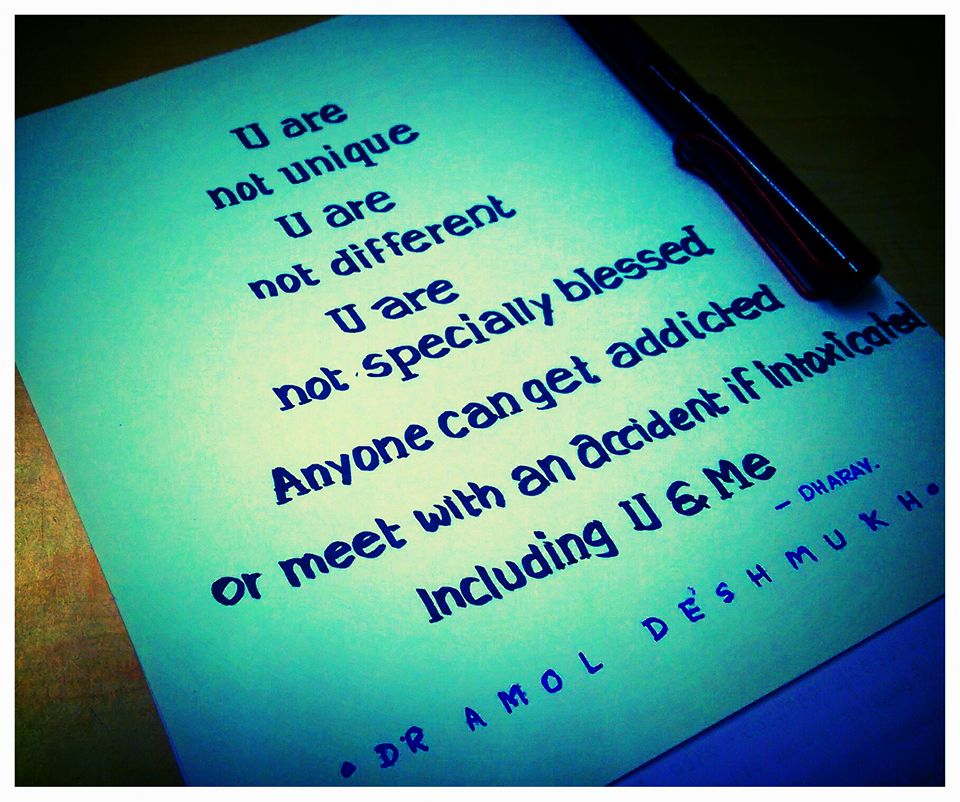 U are
not unique
U are
not different
U are
not specially blessed
Anyone can get addicted
or meet with an accident if intoxicated
Including U & Me
– DHARAV.
• DR AMOL DESHMUKH •